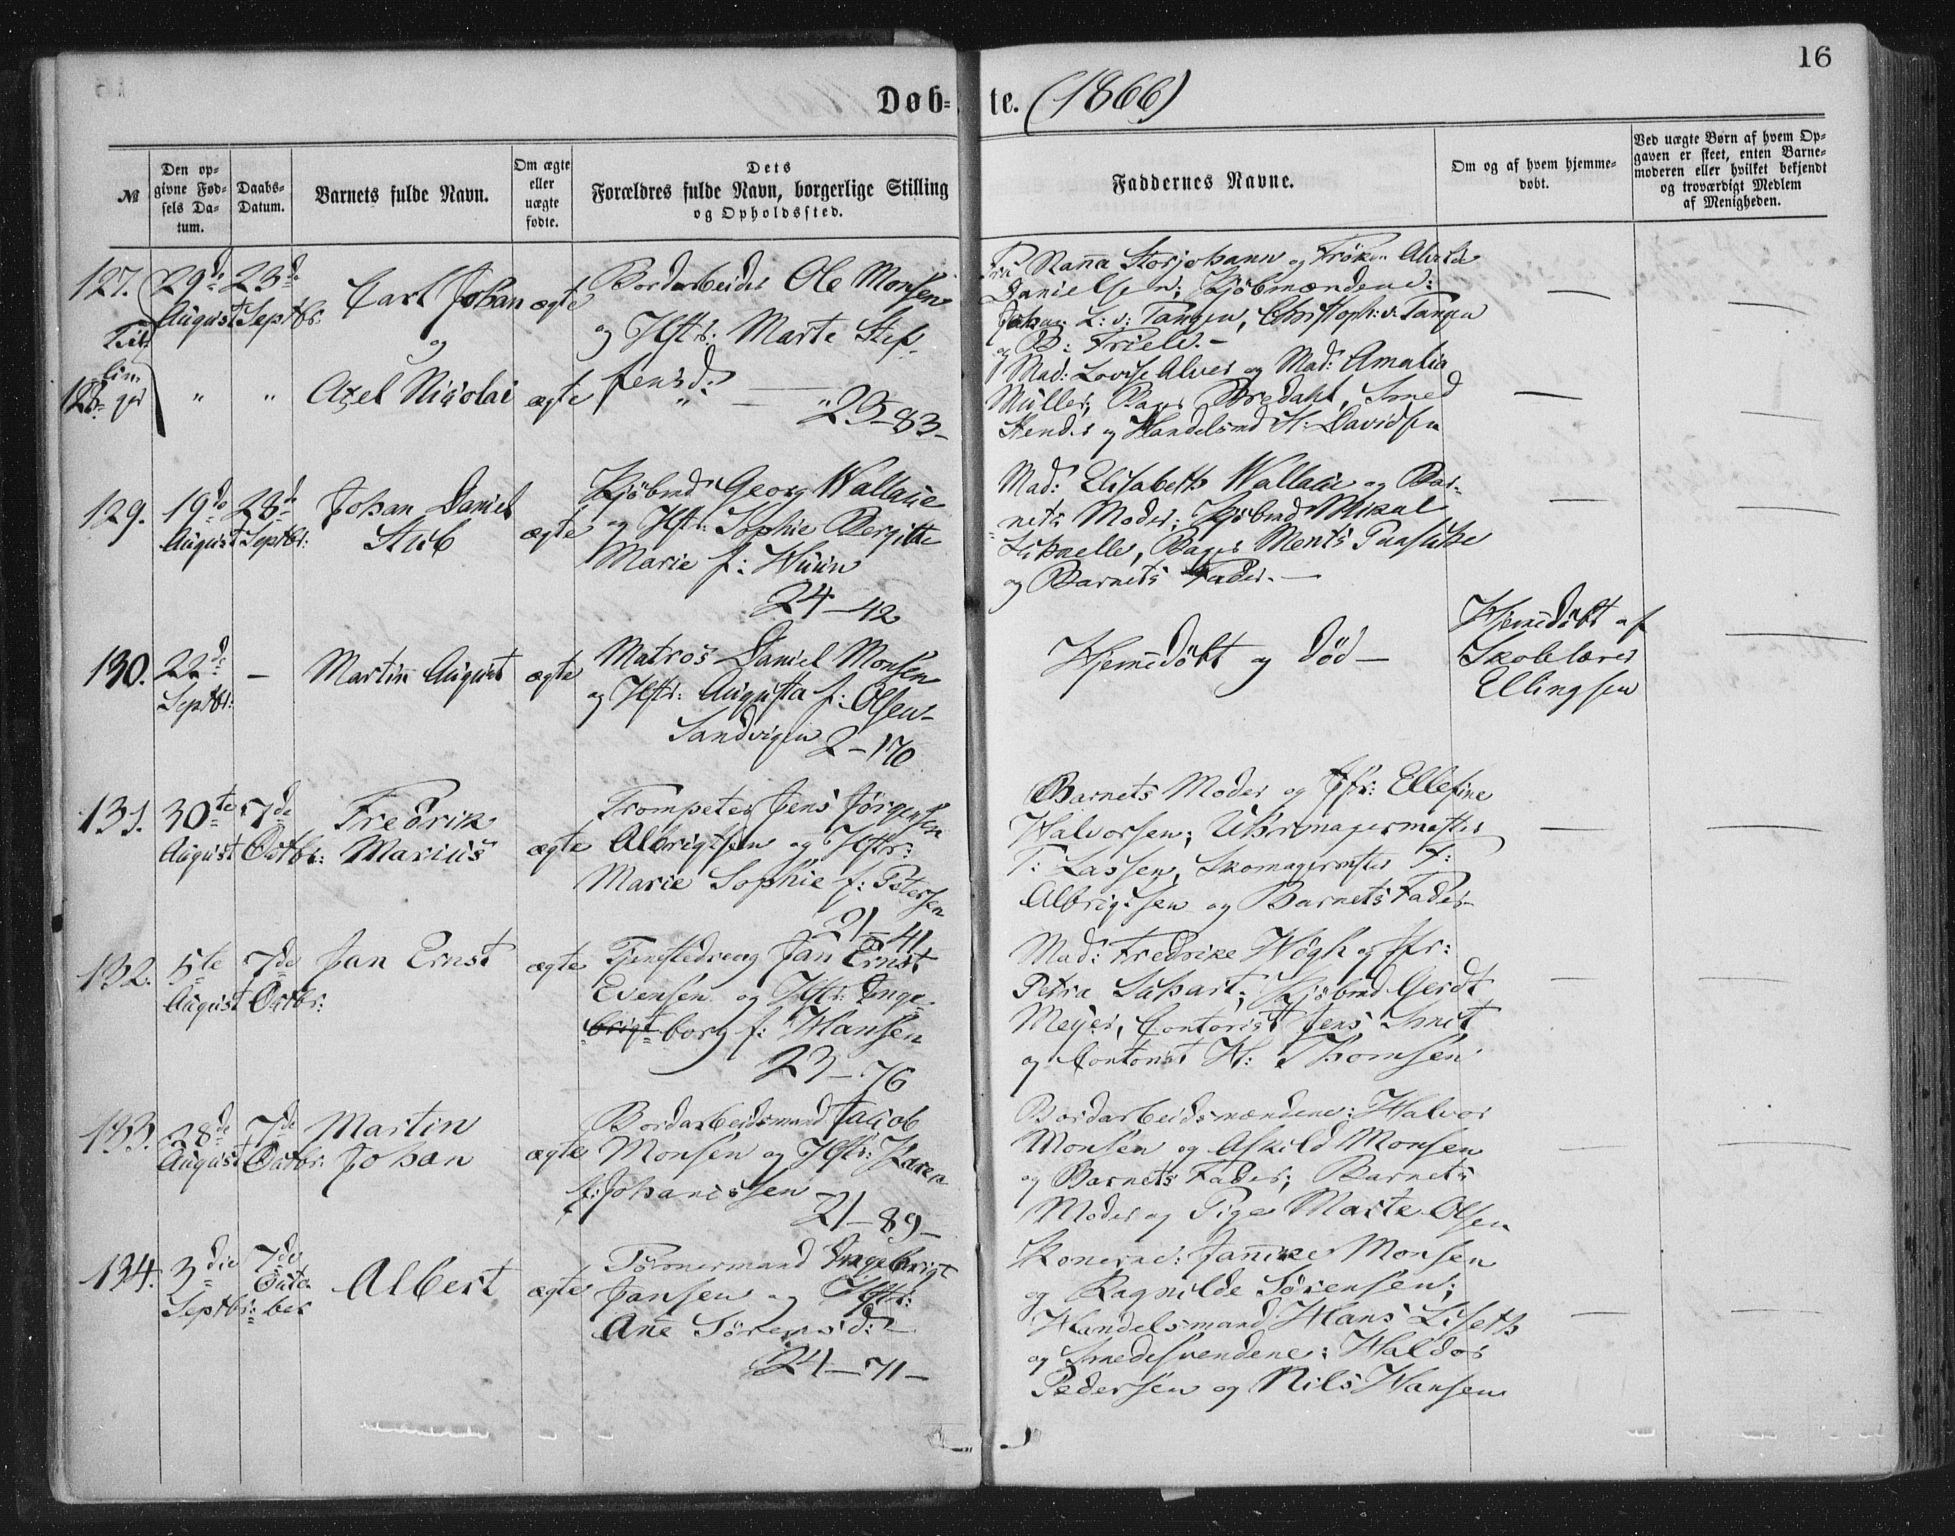 16
Døb=te. (1866)
№
Den op=
givne Fød=
sels Da=
tum.
Daabs=
Datum.
Barnets fulde Navn.
Om ægte
eller
uægte
fødte.
Dets
Forældres fulde Navn, borgerlige Stilling
og Opholdssted.
Faddernes Navne.
Om og af hvem hjemme=
døbt.
Ved uægte Børn af hvem Op=
gaven er skeet, enten Barne=
moderen eller hvilket bekjendt
og troværdigt Medlem
af Menigheden.
127.
29de
August
23de
Septbr:
Carl Johan
og
ægte
Bordarbeider Ole Monsen
og Hstr: Marte Stef-
fensd:
Fru Nanna Storjohann og Frøken Alvilde
Danielsen; Kjöbmændene:
Johan L: v: Tangen, Christoph: v: Tangen
og B: Friele. -
—
—
Tvil
lin
ger
128.
"
"
Axel Nicolai
ægte
" — "
23-83-
Mad: Lovise Alver og Mad: Amalia
Müller, Bager Bredahl, Smed
Stender og Handelsmd H: Davidsen
—
—
129.
19de
August
23de
Septbr:
Johan Daniel
Stub
ægte
Kjöbmd Georg Wallace
og Hstr: Sophie Bergitte
Marie f: Wiin
24-42
Mad: Elisabeth Wallace og Bar-
nets Moder; Kjöbmd Mikal
Bager Ments
og Barnets Fader. —
—
—
130.
22de
Septbr:
—
Martin August
ægte
Matros Daniel Monsen
og Hstr: Augusta f: Olsen-
Sandvigen 2-170
Hjemdöbt og död —
Hjemdöbt af
Skolelærer
Ellingsen
—
131.
30te
August
7de
Octbr:
Fredrik
Marius
ægte
Trompeter Jens Jörgensen
Albrigtsen og Hstr:
Marie Sophie f: Petersen
21-41
Barnets Moder og Jfr: Ellefine
Halvorsen; Uhrmagermester
T: Lassen, Skomagermester F:
Albrigtsen og Barnets Fader-
—
—
132.
5te
August
7de
Octbr:
Jan Ernst
ægte
Tjenestedreng Jan Ernst
Evensen og Hstr: Inge-
brigt- borg f: Hansen
23-76
Mad: Fredrike Högh og Jfr:
Petra; Kjöbmd Gerdt
Meyer, Contorist Jens Smit
og Contorist H: Thomsen
—
—
133.
28de
August
7de
Octbr:
Martin
Johan
ægte
Bordarbeidsmand Jacob
Monsen og Hstr: Karen
f: Johanessen
21-89-
Bordarbeidsmændene: Halvor
Monsen og Askild Monsen
og Barnets Fader; Barnets
Moder og Pige Marte Olsen
—
—
134.
3die
Septbr:
7de
Octo-
ber
Albert
ægte
Tömmermand Ingebrigt
Jansen og Hstr:
Ane Sörensd:
24-71-
Konerne: Jannike Monsen
og Ragnilde Sörensen;
Handelsmand Hans Liseth
og Smedesvendene: Haldor
Pedersen og Nils Hansen
—
—